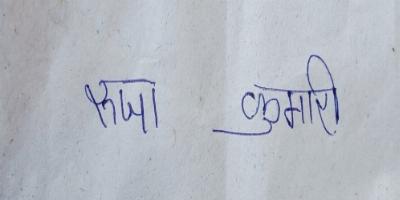 रूपा कुमारी